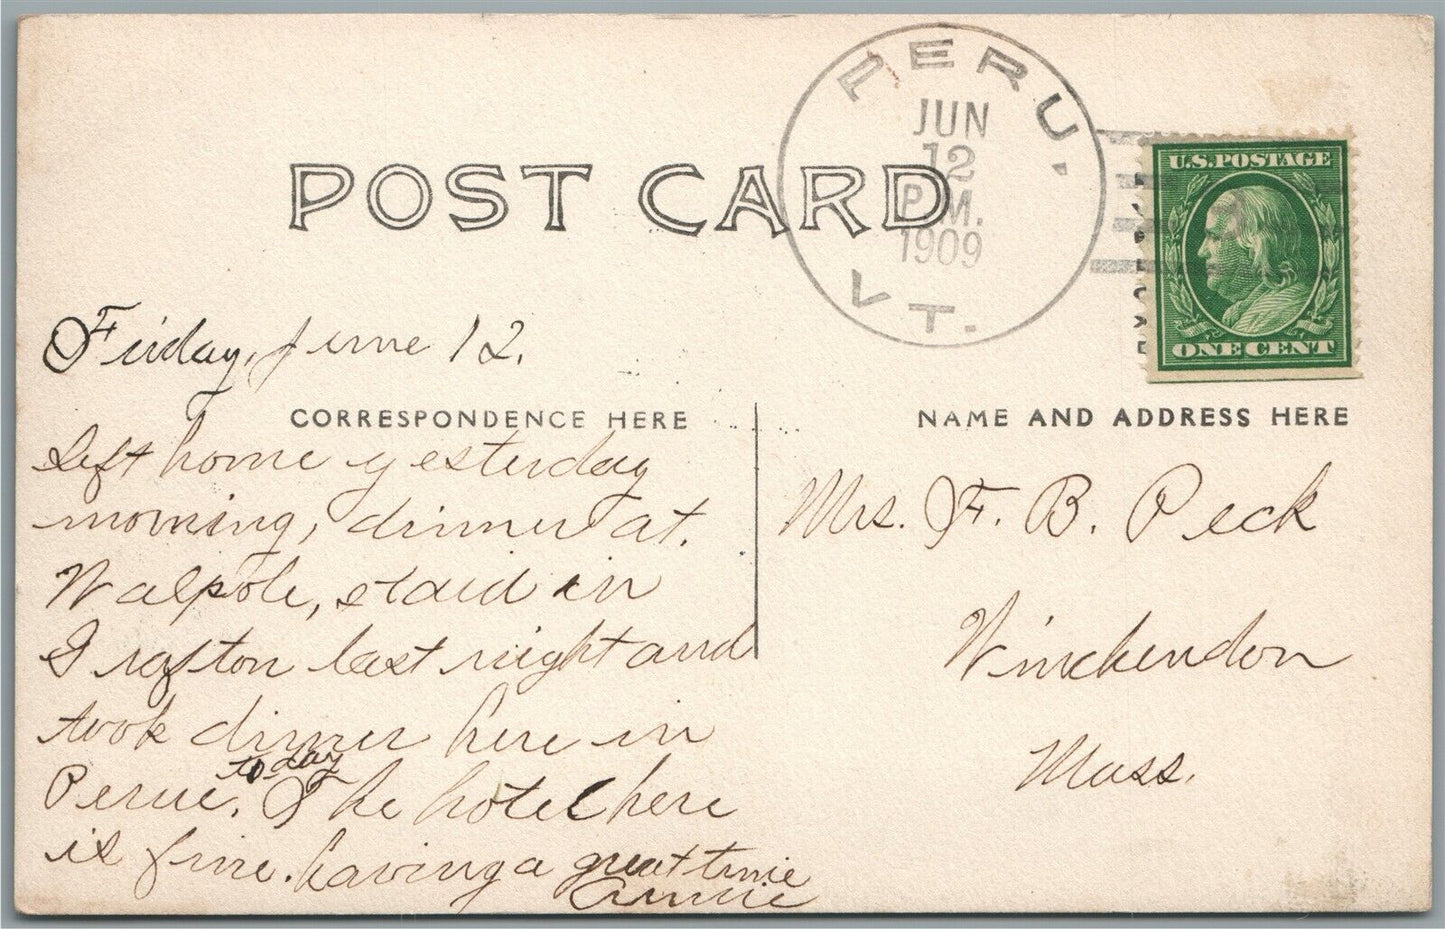 PERU, VT.
JUN
12
P.M.
1909
U.S.POSTAGE
ONE CENT
POST CARD
Friday, June 12.
CORRESPONDENCE HERE
Left home yesterday
morning, dinner at.
Walpole, staid in
Grafton last night and
took dinner here in
to day
Perue. The hotel here
is fine. having a great time
Annie
NAME AND ADDRESS HERE
Mrs. F. B. Peck
Winchendon
Mass.